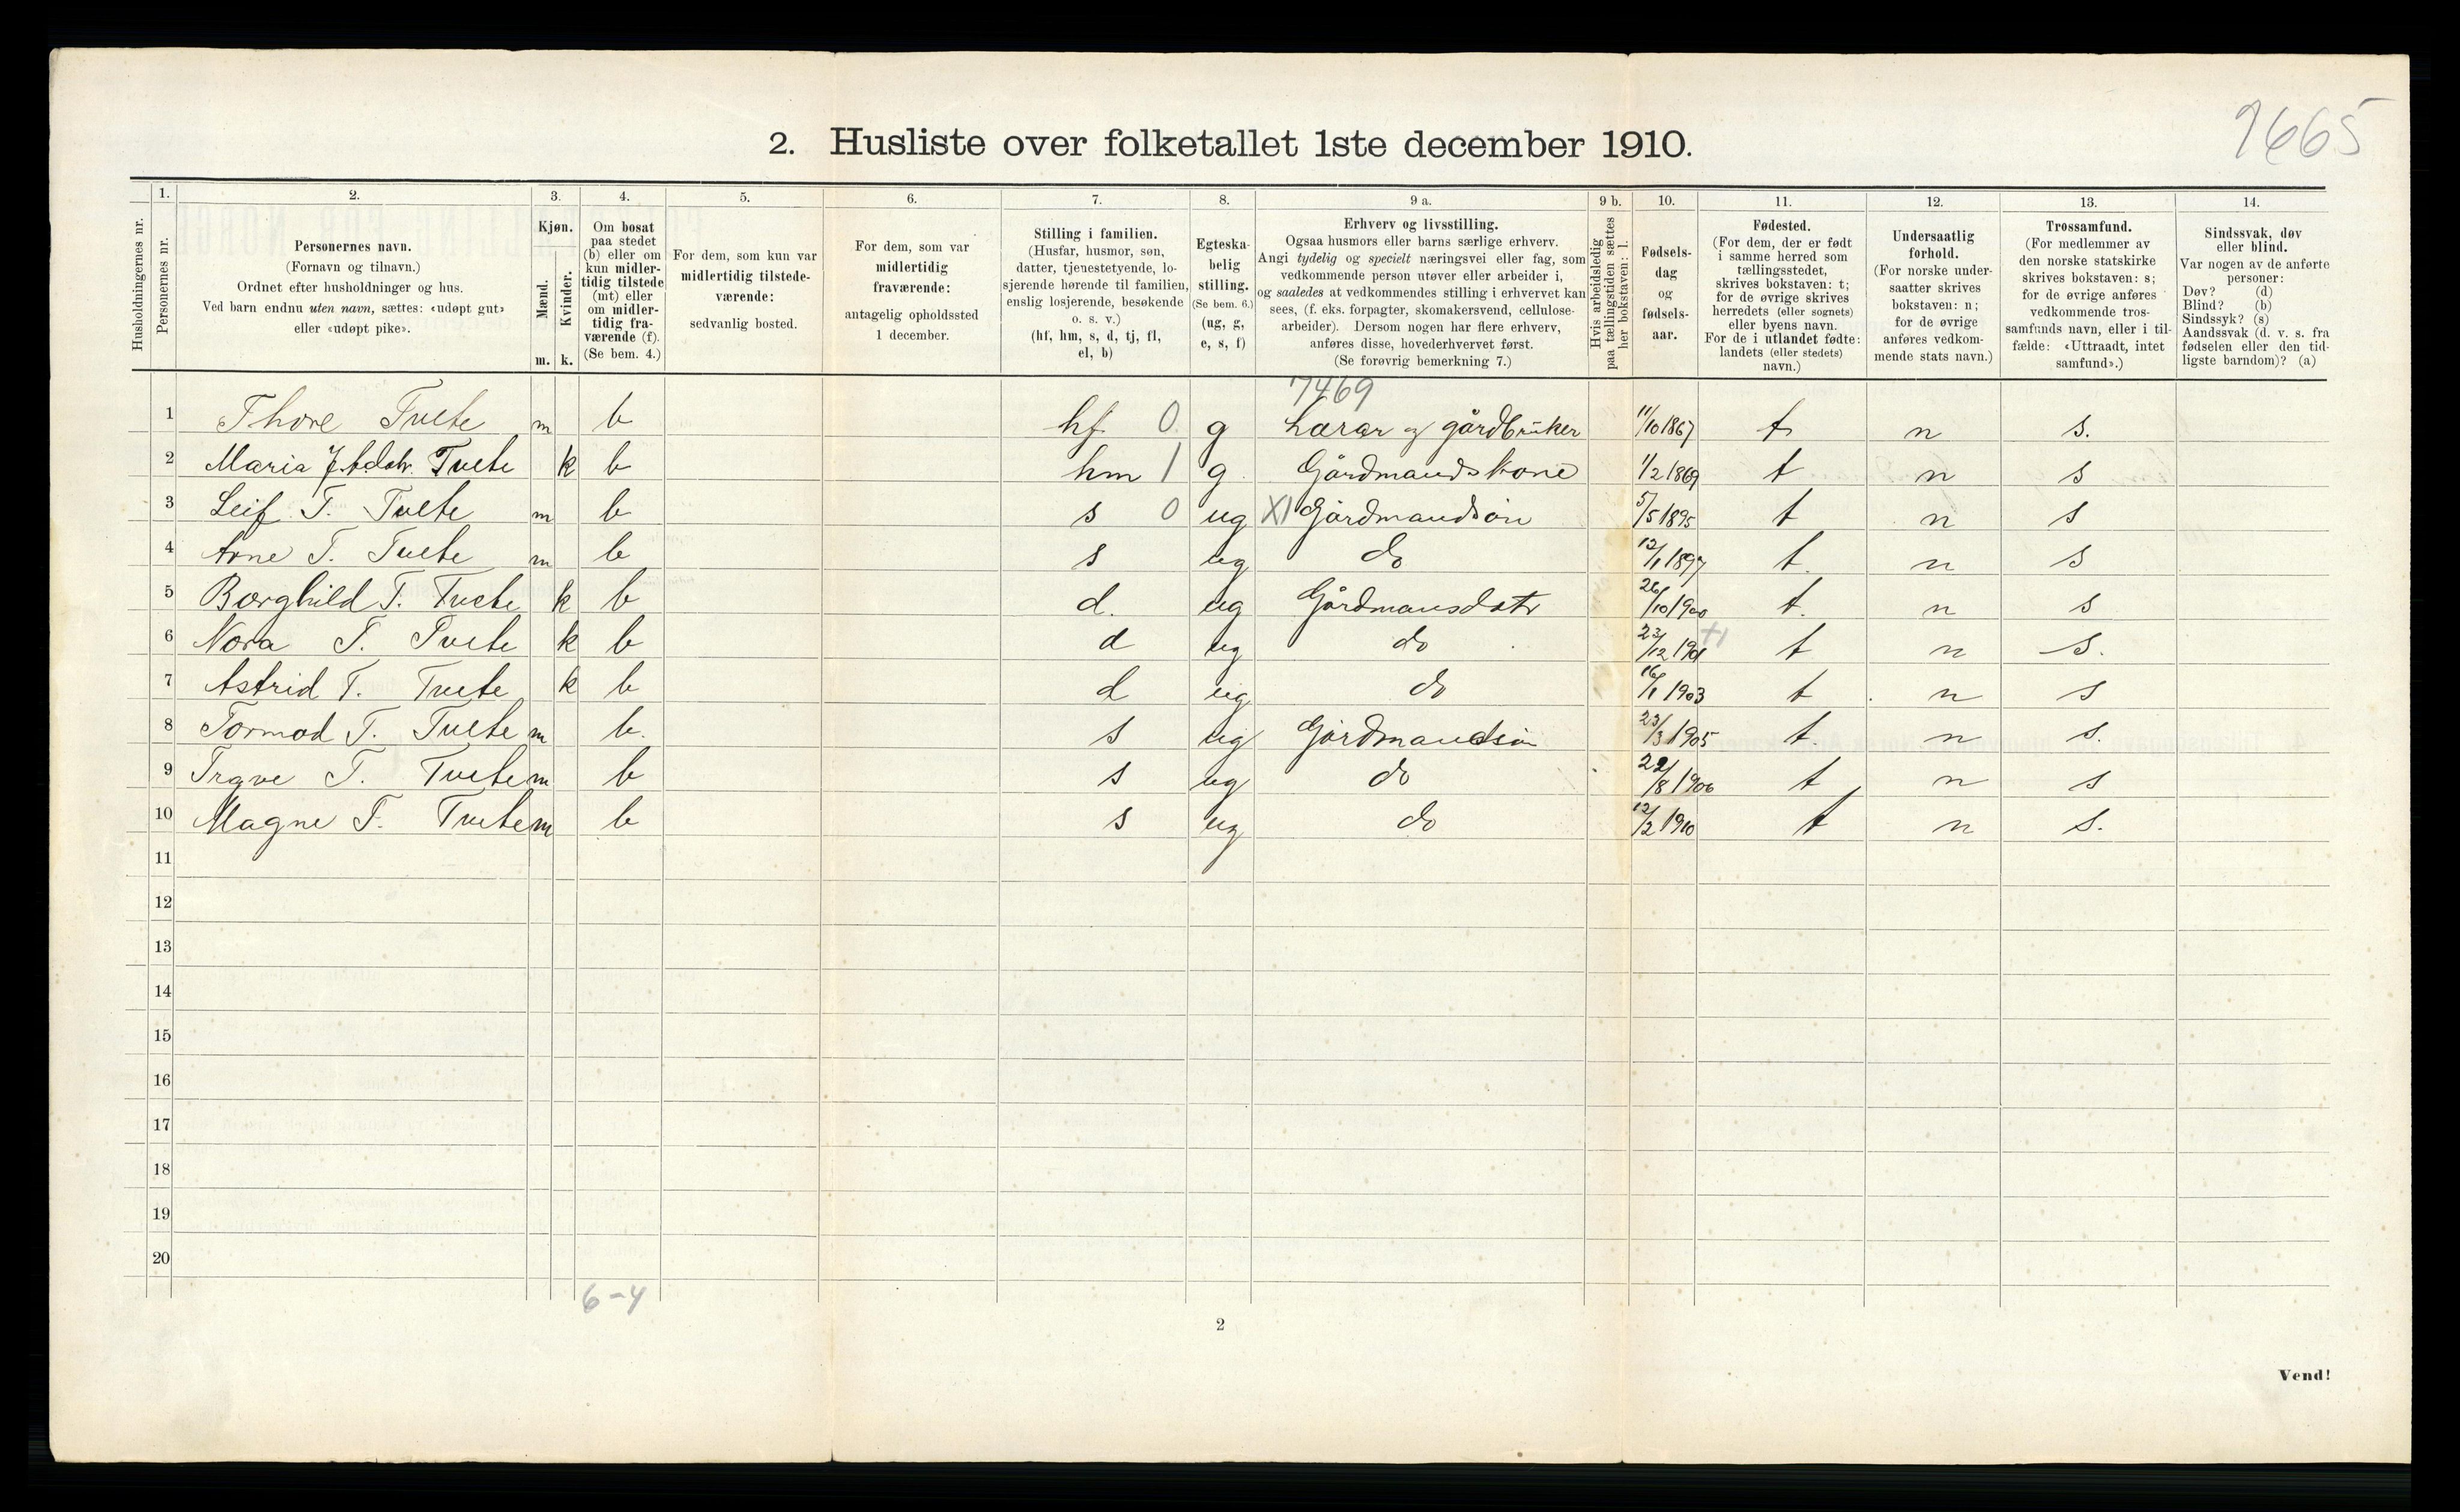 9665
2. Husliste over folketallet 1ste december 1910.
1. 2. 3. 4. 5. 6. 7. 8. 9 a. 9 b. 10. 11. 12. 13. 14.
Husholdningernes nr.
Personernes nr.
Personernes navn.
(Fornavn og tilnavn.)
Ordnet efter husholdninger og hus.
Ved barn endnu uten navn, sættes: «udøpt gut»
eller «udøpt pike».
Kjøn.
Mænd.
Kvinder.
m. k.
Om bosat
paa stedet
(b) eller om
kun midler-
tidig tilstede
(mt) eller
om midler-
tidig fra-
værende (f).
(Se bem. 4.)
For dem, som kun var
midlertidig tilstede-
værende:
sedvanlig bosted.
For dem, som var
midlertidig
fraværende:
antagelig opholdssted
1 december.
Stilling i familien.
(Husfar, husmor, søn,
datter, tjenestetyende, lo-
sjerende hørende til familien,
enslig losjerende, besøkende
o. s. v.)
(hf, hm, s, d, tj, fl,
el, b)
Egteska-
belig
stilling.
(Se bem. 6.)
(ug, g,
e, s, f)
Erhverv og livsstilling.
Ogsaa husmors eller barns særlige erhverv.
Angi tydelig og specielt næringsvei eller fag, som
vedkommende person utøver eller arbeider i,
og saaledes at vedkommendes stilling i erhvervet kan
sees, (f. eks. forpagter, skomakersvend, cellulose-
arbeider). Dersom nogen har flere erhverv,
anføres disse, hovederhvervet først.
(Se forøvrig bemerkning 7.)
Hvis arbeidsledig
paa tællingstiden sættes
her bokstaven: l.
Fødsels-
dag
og
fødsels-
aar.
Fødested.
(For dem, der er født
i samme herred som
tællingsstedet,
skrives bokstaven: t;
for de øvrige skrives
herredets (eller sognets)
eller byens navn.
For de i utlandet fødte:
landets (eller stedets)
navn.)
Undersaatlig
forhold.
(For norske under-
saatter skrives
bokstaven: n;
for de øvrige
anføres vedkom-
mende stats navn.)
Trossamfund.
(For medlemmer av
den norske statskirke
skrives bokstaven: s;
for de øvrige anføres
vedkommende tros-
samfunds navn, eller i til-
fælde: «Uttraadt, intet
samfund».)
Sindssvak, døv
eller blind.
Var nogen av de anførte
personer:
Døv? (d)
Blind? (b)
Sindssyk? (s)
Aandssvak (d. v. s. fra
fødselen eller den tid-
ligste barndom)? (a)
7469
1 Thore Tvete m b hf 0 g Lærar og gårdbruker 11/10 1867 t n s.
2 Maria Tvete k b hm 1 g Gårdmandskone 1/2 1869 t n s
3 Leif T. Tvete m b s 0 ug XI Gårdmandsön 5/5 1895 t n s
4 Arne T. Tvete m b s ug do 12/1 1897 t. n s
5 Borghild T. Tvete k b d. ug Gårdmansdatr 26/10 1900 t. n s
6 Nora T. Tvete k b d ug do 23/12 1901 t n s.
7 Astrid T. Tvete k b d ug do 16/1 1903 t n s
8 Tormod T. Tvete m b. s ug Gårdmandsön 23/3 1905 t. n s.
9 Trgve T. Tvete m b s ug do 22/8 1906 t n s
10 Magne T. Tvete m b s ug do 12/2 1910 t n s.
11
12
13
14
15
16
17
18
19
20
6-4
2
Vend!